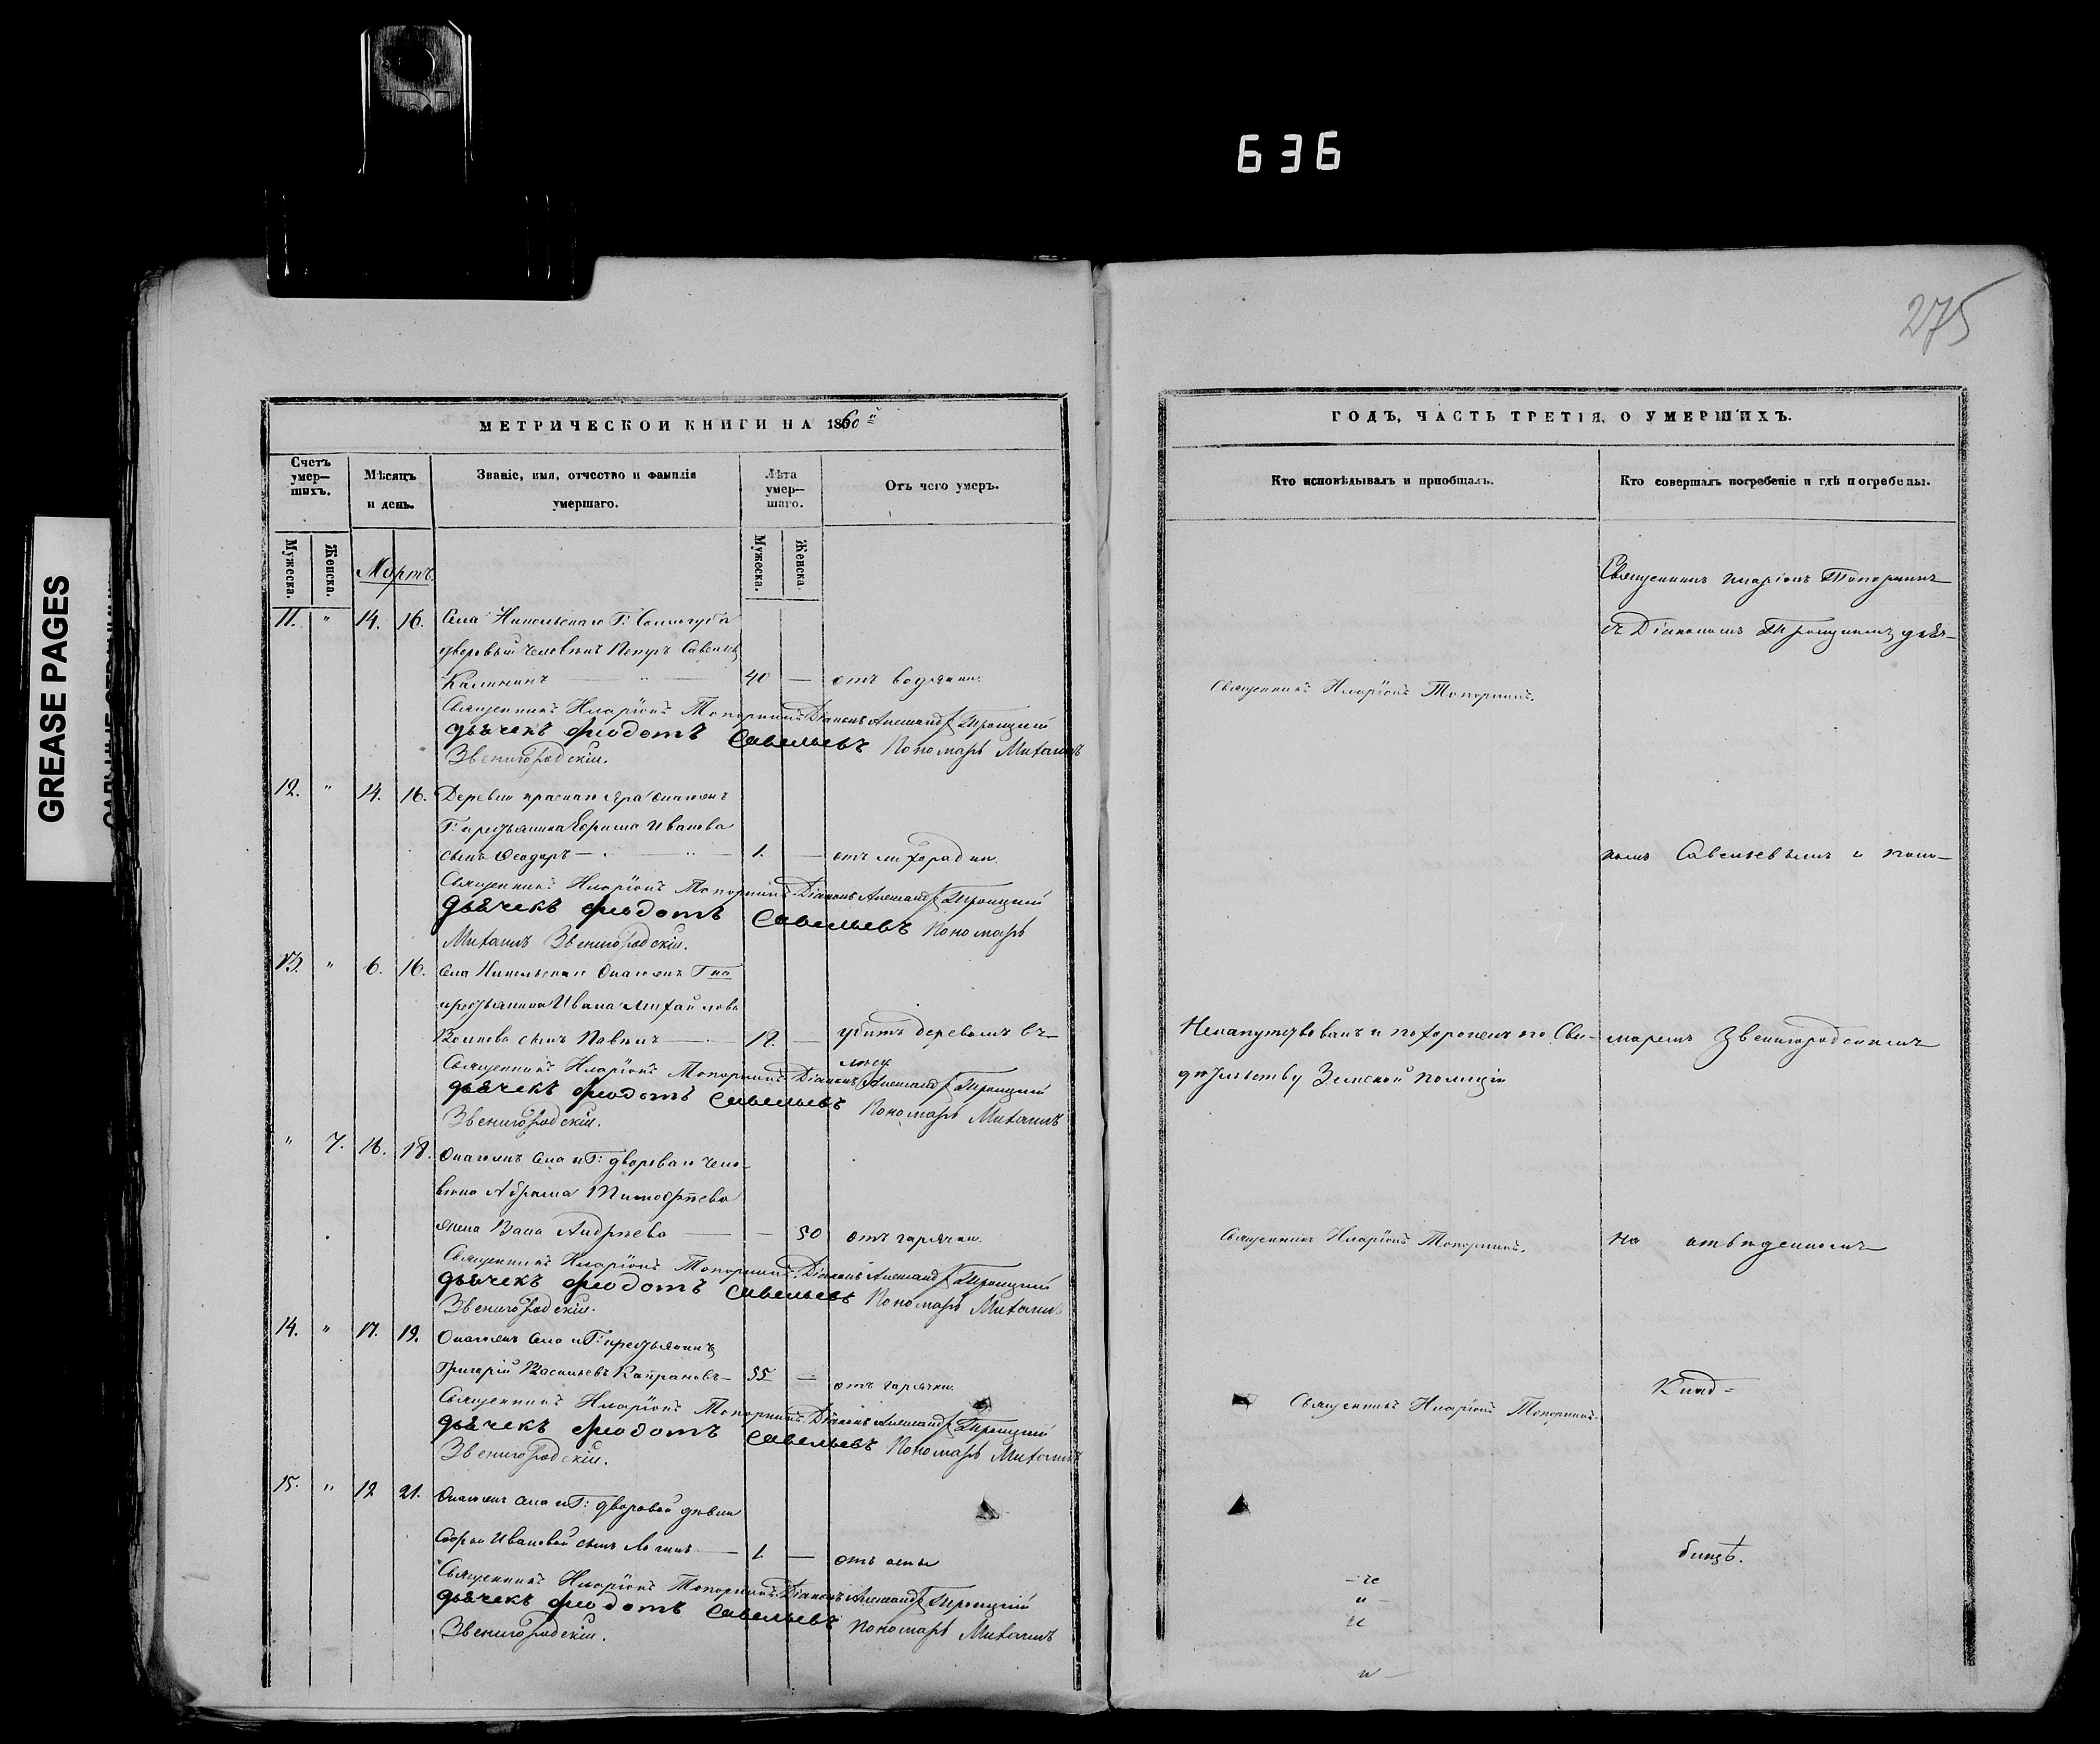 636
GREASE PAGES
275
МЕТРИЧЕСКОЙ КНИГИ НА 1860й
Счетъ умер-шихъ.
Мѣсяцъ и день.
Званіе, имя, отчество и фамилія умершаго.
Лѣта умер-шаго.
Отъ чего умеръ.
Мужеска.
Женска.
Мужеска.
Женска.
Мартъ.
11. " 14. 16. Села Никольскаго Г:
дворовый человѣкъ Петръ Савельевъ
Калининъ — 40 — отъ водянки.
Священникъ Иларіонъ Топорнинъ Діаконъ Александръ Троицкій
дьячекъ Феодотъ Савельевъ Пономарь Михаилъ
Звенигородскій.
12. " 14. 16. Деревни Краснаго Яра онагожъ
Г: крестьянина Ефима Иванова
сынъ Феодоръ — 1. — отъ лихорадки
Священникъ Иларіонъ Топорнинъ Діаконъ Александръ Троицкій
дьячекъ Феодотъ Савельевъ Пономарь
Михаилъ Звенигородскій.
13. " 6. 16. Села Никольскаго Онагожъ Гна
крестьянина Ивана Михайлова
Волкова сынъ — 12. — убитъ деревомъ въ
лѣсу
Священникъ Иларіонъ Топорнинъ Діаконъ Александръ Троицкій
дьячекъ Феодотъ Савельевъ Пономарь Михаилъ
Звенигородскій.
" 7. 16. 18. Онагожъ села и Г: двороваго чело-
вѣка Абрама Тимофѣева
жена Васса Андрѣева — — 50 отъ горячки.
Священникъ Иларіонъ Топорнинъ Діаконъ Александръ Троицкій
дьячекъ Феодотъ Савельевъ Пономарь Михаилъ
Звенигородскій.
14. " 17. 19. Онагожъ села и Г: крестьянинъ
Григорій Васильевъ — 55 — отъ горячки.
Священникъ Иларіонъ Топорнинъ Діаконъ Александръ Троицкій
дьячекъ Феодотъ Савельевъ Пономарь Михаилъ
Звенигородскій.
15. " 19 21. Онагожъ села и Г: дворовой дѣвки
Софьи Ивановой сынъ Логинъ — 1. — отъ оспы
Священникъ Иларіонъ Топорнинъ Діаконъ Александръ Троицкій
дьячекъ Феодотъ Савельевъ Пономарь Михаилъ
Звенигородскій.
ГОДЪ, ЧАСТЬ ТРЕТІЯ, О УМЕРШИХЪ.
Кто исповѣдывалъ и пріобщалъ.
Кто совершалъ погребеніе и гдѣ погребены.
Священникъ Иларіонъ Топорнинъ
съ Діакономъ Троицкимъ дьяч-
Священникъ Иларіонъ Топорнинъ.
комъ Савельевымъ и поно-
Ненапутствованъ и похороненъ по Сви-
маремъ Звенигородскимъ
дѣтельству Земской полиціи
Священникъ Иларіонъ Топорнинъ.
на отведенномъ
Клад-
Священникъ Иларіонъ Топорнинъ.
бищѣ.